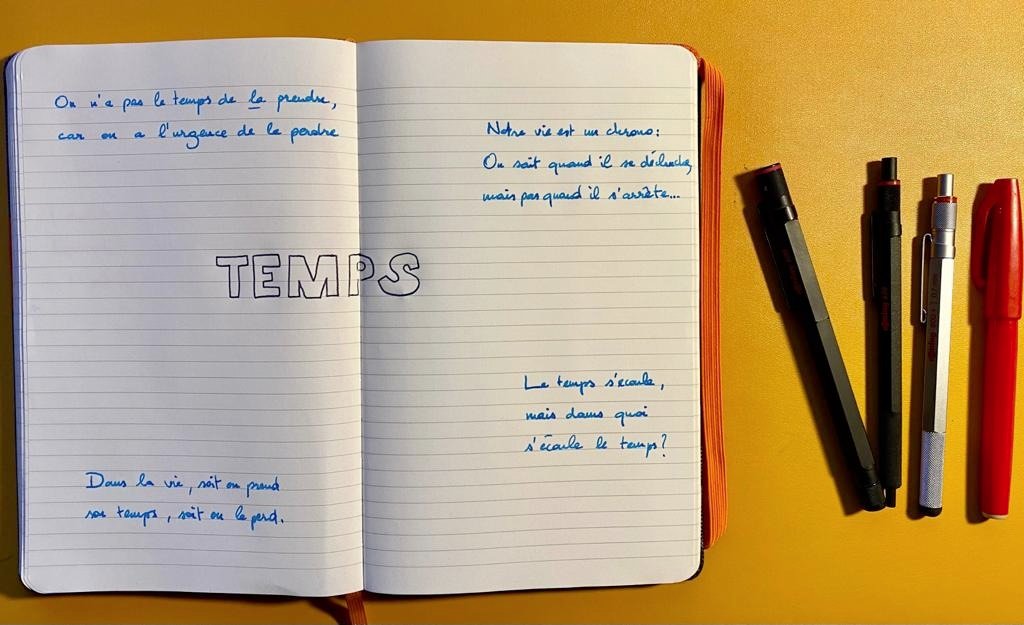 On n'a pas le temps de le prendre,
car on a l'urgence de le perdre
Notre vie est un chrono:
On sait quand il se déclenche,
mais pas quand il s'arrête...
TEMPS
Le temps s'écoule,
mais dans quoi
s'écoule le temps?
Dans la vie, soit on prend
son temps, soit on le perd.
rotring